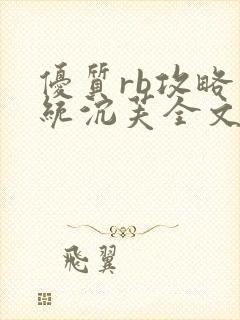 優質rb攻略
統沉芙全文
飛翼